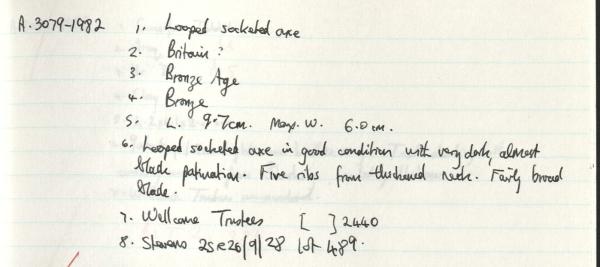 A.3079-1982 1. Looped socketed axe
2. Britain?
3. Bronze Age
4. Bronze
5. L. 9.7cm. Max. W. 6.0cm.
6. Looped socketed axe in good condition with very dark, almost
black patination. Five ribs from thickened neck. Fairly broad
blade.
7. Wellcome Trustees [ ] 2440
8. Stevens 25 & 26/9/28 lot 489.